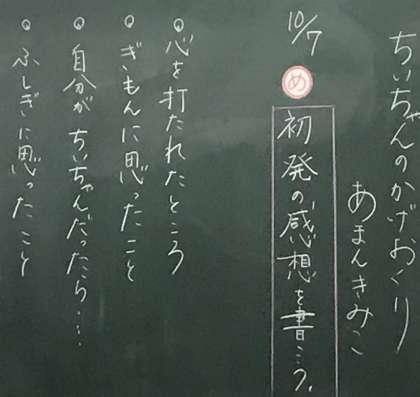 ちいちゃんのかげおくり
あまんきみこ
10/7
め
初発の感想を書こう。
心を打たれたところ
ぎもんに思ったこと
自分がちいちゃんだったら…
ふしぎに思ったこと